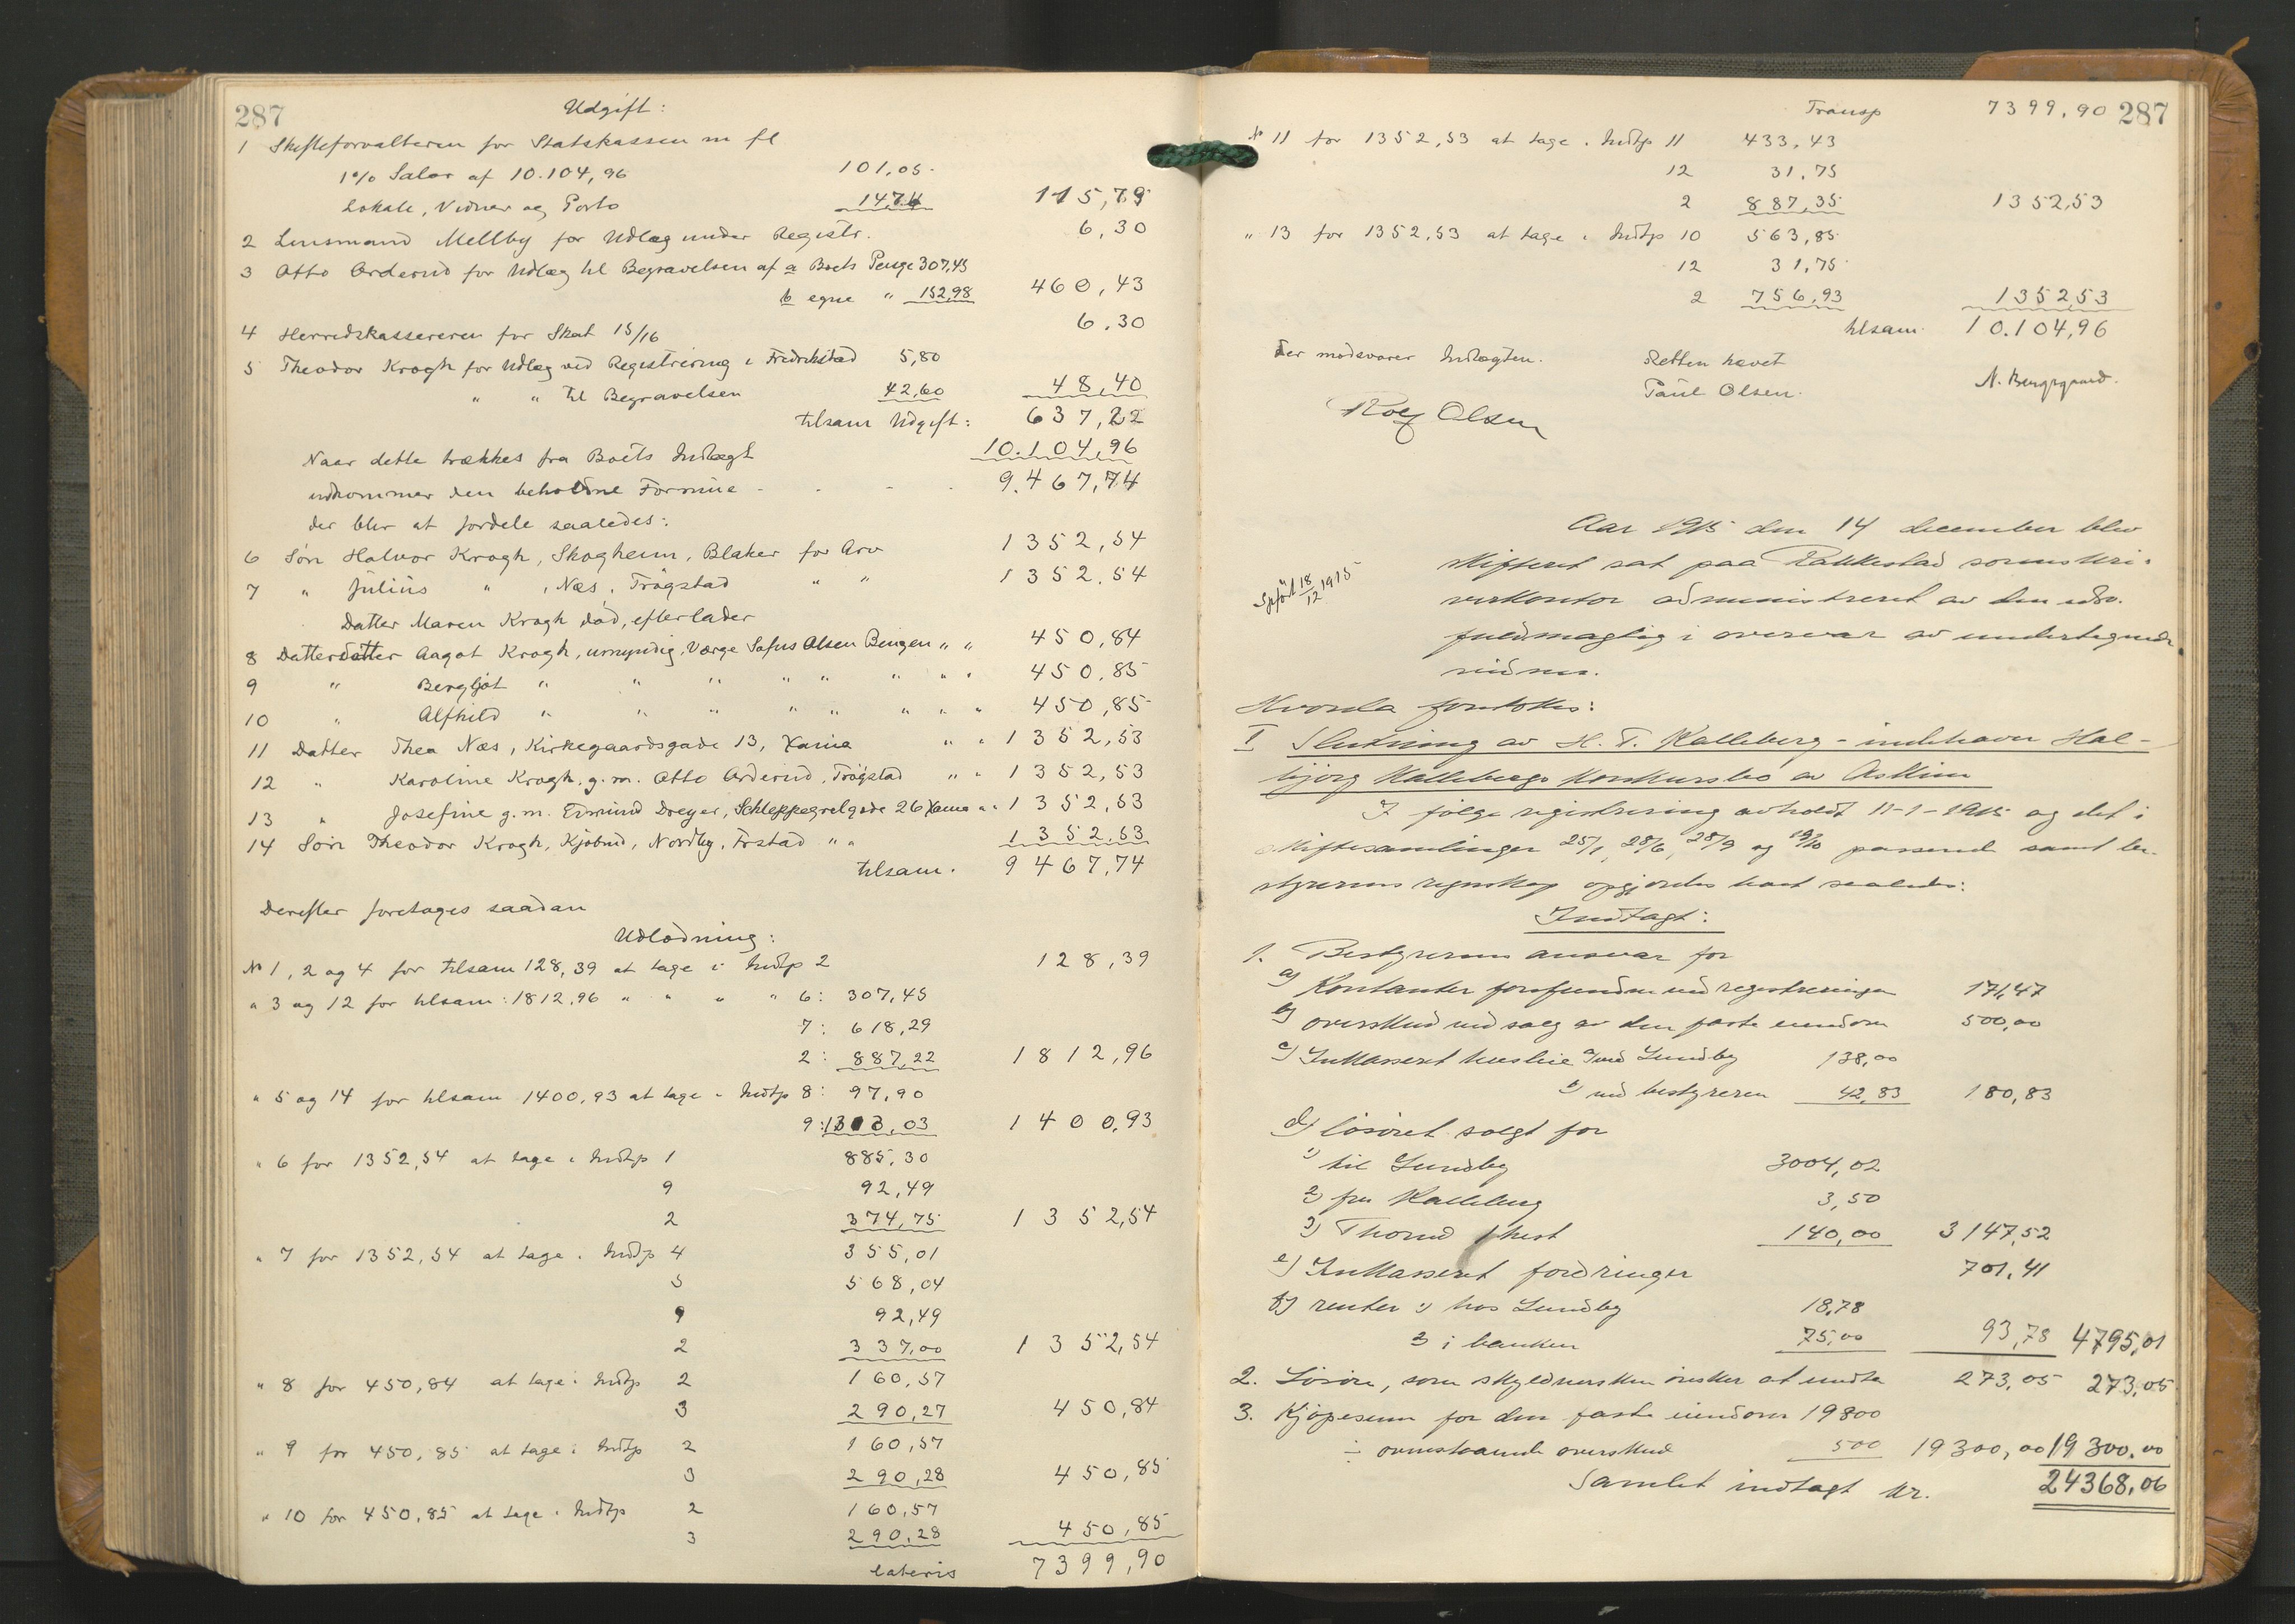 287
Udgift:
1 Skifteforvalteren for Statskassen m fl
1% Salær af 10.104,96 101,05
Lokale, Vidner og Porto 14,74 115,79
2 Lensmand Mellby for Udlæg under Registr. 6,30
3 Otto Arderud for Udlæg til Begravelsen af a Boets Penge 307,45
b egne " 152,98 460,43
4 Herredskassereren for Skat 15/16 6,30
5 Theodor Krogh for Udlæg ved Registrering i Fredrikstad 5,80
" " til Begravelsen 42,60 48,40
tilsam Udgift: 637,22
Naar dette trækkes fra Boets Indtægt 10.104,96
udkommer den beholdne Formue - - - - 9.467,74
der blir at fordele saaledes:
6 Søn Halvor Krogh, Skogheim, Blaker for Arv 1352,54
7 " Julius " , Næs, Trøgstad " " 1352,54
Datter Maren Krogh død, efterlader
8 Datterdatter Aagot Krogh, umyndig, Værge Sofus Olsen Bingen " " 450,84
9 " Bergljot " " " " " " " " 450,85
10 " Alfhild " " " " " " " " 450,85
11 Datter Thea Næs, Kirkegaardsgade 13, Xania " " 1352,53
12 " Karoline Krogh, g.m. Otto Arderud, Trøgstad " " 1352,53
13 " Josefine g.m. Edmund Dreyer, Schleppegrelsgade 26 Xania " " 1352,53
14 Søn Theodor Krogh, Kjøbmd, Nordby, Frstad " " 1352,53
tilsam. 9467,74
Derefter foretages saadan
Udlodning:
No 1, 2 og 4 for tilsam 128,39 at tage i Indtp 2 128,39
" 3 og 12 for tilsam: 1812,96 " " " " 6: 307,45
7: 618,29
2: 887,22 1812,96
" 5 og 14 for tilsam 1400,93 at tage i Indtp 8: 97,90
9: 1303,03 1400,93
" 6 for 1352,54 at tage i Indtp 1 885,30
9 92,49
2 374,75 1352,54
" 7 for 1352,54 at tage i Indtp 4 355,01
5 568,04
9 92,49
2 337,00 1352,54
" 8 for 450,84 at tage i Indtp 2 160,57
3 290,27 450,84
" 9 for 450,85 at tage i Indtp 2 160,57
3 290,28 450,85
" 10 for 450,85 at tage i Indtp 2 160,57
3 290,28 450,85
lateris 7399,90
Transp 7399,90 287
No 11 for 1352,53 at tage i Indtp 11 433,43
12 31,75
2 887,35 1352,53
" 13 for 1352,53 at tage i Indtp 10 563,85
12 31,75
2 756,93 1352,53
tilsam. 10.104,96
der modsvarer Indtægten. Retten hævet
Paul Olsen. N. Berggaard.
Rolf Olsen
Aar 1915 den 14 december blev
skifteret sat paa Rakkestad sorenskri-
verkontor administreret av den edsv.
fuldmægtig i overvær av undertegnede
vidner.
18/12 1915
Hvorda foretokes:
I Slutning av H. T. Kalleberg - indehaver Hal-
bjørg Kallebergs konkursbo av Askim
I følge registrering avholdt 11-1-1915 og det i
skiftesamlinger 25/1, 28/6, 28/9 og 19/10 passerede samt be-
styrerens regnskap opgjordes boet saaledes:
Indtægt:
1. Bestyrerens ansvar for
a) Kontanter forefundne ved registreringen 171,47
b) overskud ved salg av den faste eiendom 500,00
c) Inkasseret husleie 1) ved Lundby 138,00
2) ved bestyreren 42,83 180,83
d) løsøret solgt for
1) til Lundby 3004,02
2) fru Kalleberg 3,50
3) Thorud 1 hest 140,00 3147,52
e) Inkasseret fordringer 701,41
f) renter 1) hos Lundby 18,78
2 i banken 75,00 93,78 4795,01
2. Løsøre, som skyldnersken ønsker at undta 273,05 273,05
3. Kjøpesum for den faste eiendom 19800
÷ ovenstaaende overskud 500 19300,00 19300,00
Samlet indtægt kr. 24368,06